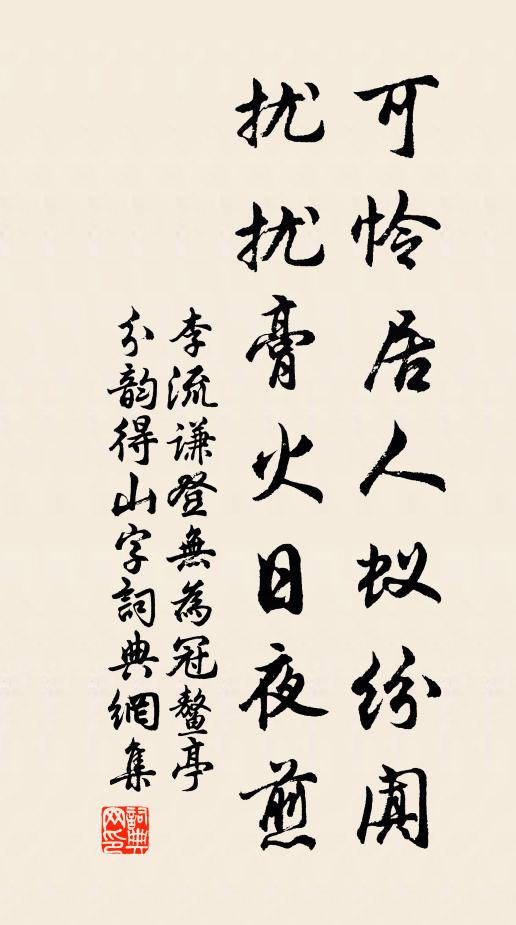 可怜居人蚁纷阗
扰扰膏火日夜煎
李流謙登無為冠鳌亭
分韵得山字詞典網集
詞典网印